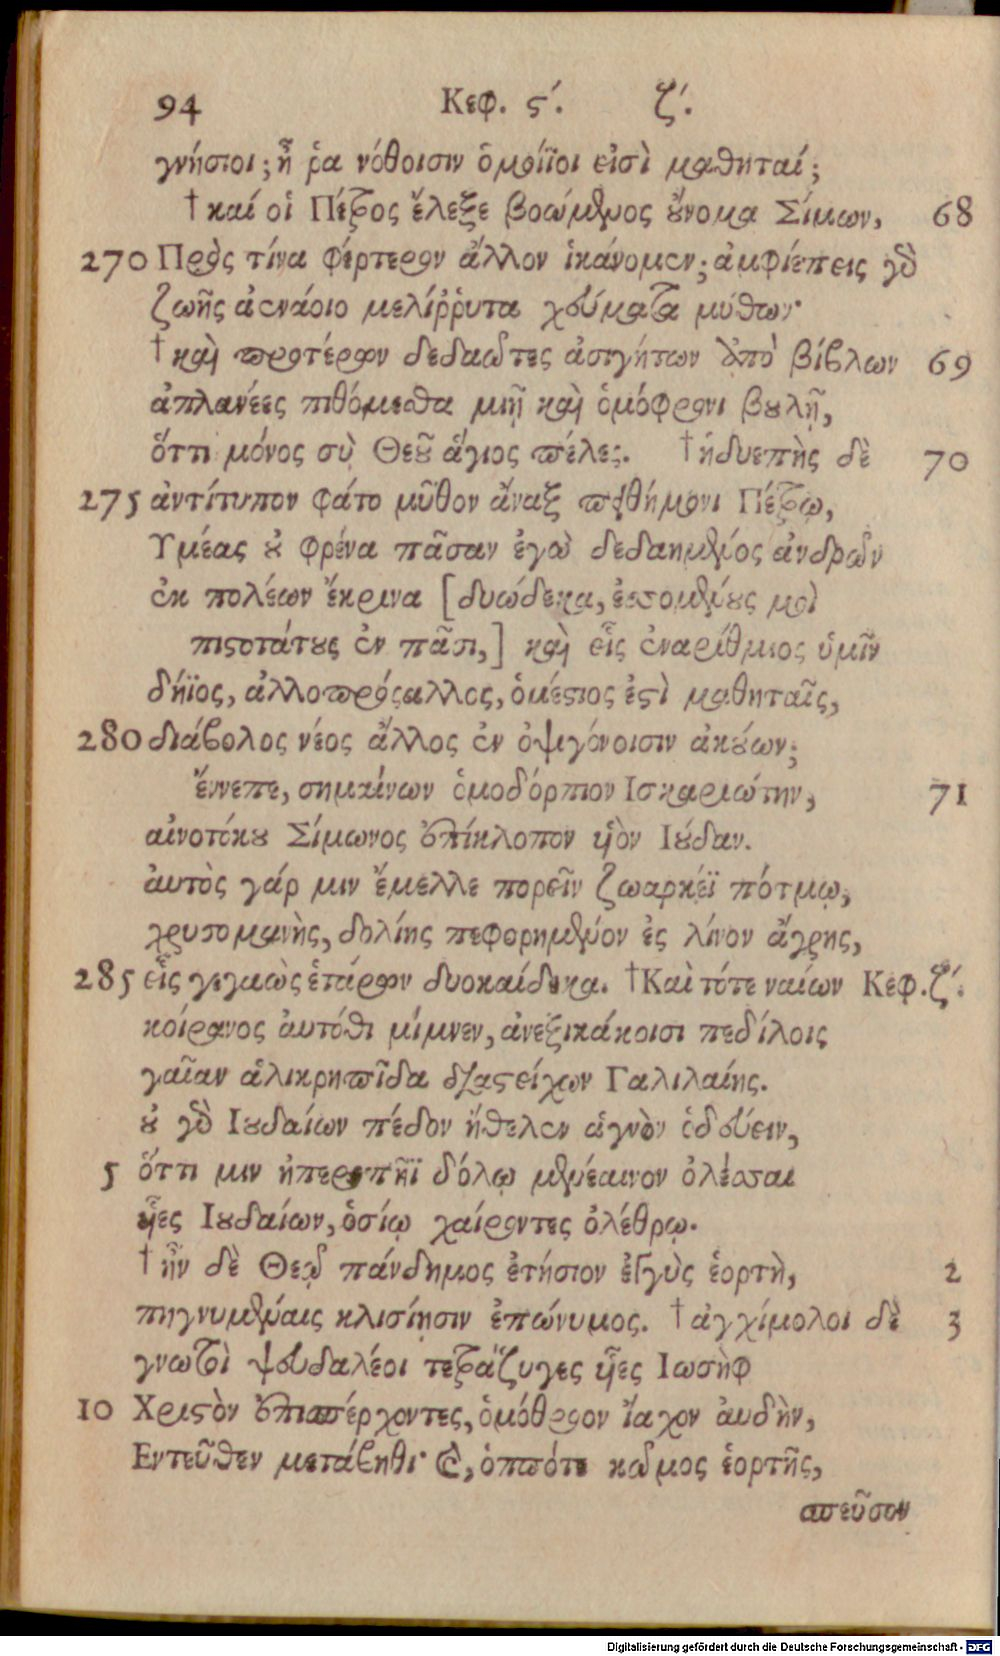 94 Κεφ. ϛ΄. ζ΄.
γνήσιοι; ἦ ῥα νόθοισιν ὁμοίϊοι εἰσὶ μαθηταί;
† καί οἱ Πέτρος ἔλεξε βοώμενος οὔνομα Σίμων, 68
270 Πρὸς τίνα φέρτερον ἄλλον ἱκάνομεν; ἀμφιέπεις γὸ
ζωῆς ἀενάοιο μελίῤῥυτα χεύματα μύθων·
† καὶ προτέρων δεδαῶτες ἀσιγήτων ἀπὸ βίβλων 69
ἀπλανέες πιθόμεσθα μιῇ καὶ ὁμόφρονι βουλῇ,
ὅττι μόνος σὺ Θεοῦ ἅγιος πέλες. † ἡδυεπὴς δὲ 70
275 ἀντίτυπον φάτο μῦθον ἄναξ πειθήμονι Πέτρῳ,
Υμέας οὐ φρένα πᾶσαν ἐγὼ δεδαημένος ἀνδρῶν
ἐκ πολέων ἔκρινα [δυώδεκα, ἐσσομένους μοὶ
πιστοτάτους ἐν πᾶσι,] καὶ εἷς ἐναρίθμιος ὑμῖν
δήϊος, ἀλλοπρόσαλλος, ὁμέστιος ἐστὶ μαθηταῖς,
280 διάβολος νέος ἄλλος ἐν ὀψιγόνοισιν ἀκούων;
ἔννεπε, σημαίνων ὁμοδόρπιον Ισκαριώτην, 71
αἰνοτόκου Σίμωνος ἐπίκλοπον υἱὸν Ιούδαν.
ἀυτὸς γάρ μιν ἔμελλε πορεῖν ζωαρκέϊ πότμῳ,
χρυσομανὴς, δολίης πεφορημένον ἐς λίνον ἄγρης,
285 εἷς γεγαὼς ἑτάρων δυοκαίδεκα. † Καὶ τότε ναίων Κεφ. ζ΄.
κοίρανος ἀυτόθι μίμνεν, ἀνεξικάκοισι πεδίλοις
γαῖαν ἁλικρηπῖδα διαστείχων Γαλιλαίης.
οὐ γὸ Ιουδαίων πέδον ἤθελεν ἁγνὸν ὁδεύειν,
5 ὅττι μιν ἠπεροπῆϊ δόλῳ μενέαινον ὀλέσσαι
υἷες Ιουδαίων, ὁσίῳ χαίροντες ὀλέθρῳ.
† ἦν δὲ Θεῷ πάνδημος ἐτήσιον ἐγγὺς ἑορτὴ, 2
πηγνυμέναις κλισίῃσιν ἐπώνυμος. † ἀγχίμολοι δὲ 3
γνωτοὶ ψευδαλέοι τετράζυγες υἷες Ιωσὴφ
10 Χριστὸν ἐπισπέρχοντες, ὁμόθροον ἴαχον ἀυδὴν,
Εντεῦθεν μετάβηθι· καὶ, ὁππότε κῶμος ἑορτῆς,
σπεῦσον
Digitalisierung gefördert durch die Deutsche Forschungsgemeinschaft - DFG